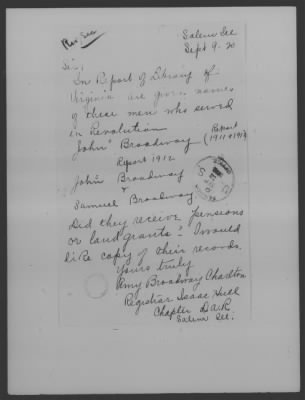 Rev. Sec
Salem Ill
Sept 9-20
Sir,
In Report of Library of
Virginia are given names
of these men who served
in Revolution
John Broadway (Report
1911 &
Report 1912
John Broadway
&
Samuel Broadway
Did they receive pensions
or land grants? I would
like copy of their records.
Yours truly
Amy Broadway Charlton
Registrar Isaac Hull
Chapter D.A.R
Salem Ill.